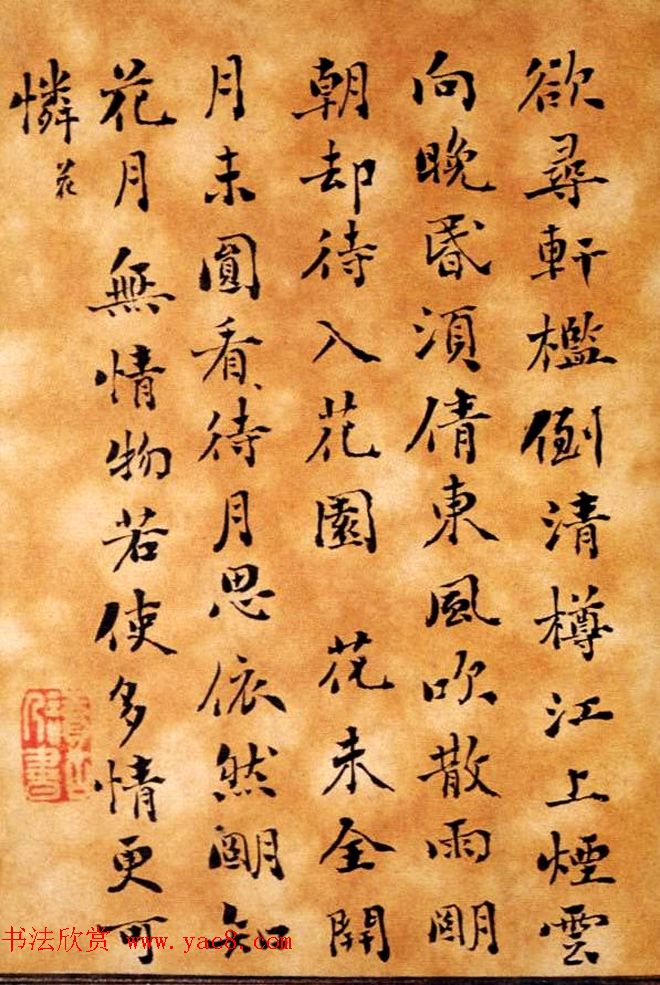 欲尋軒檻倒清樽江上煙雲
向晚昬須倩東風吹散雨明
朝却待入花園 花未全開
月未圓看、待月思依然明知
花月無情物若使多情更可
憐 花
书法欣赏 www.yac8.com